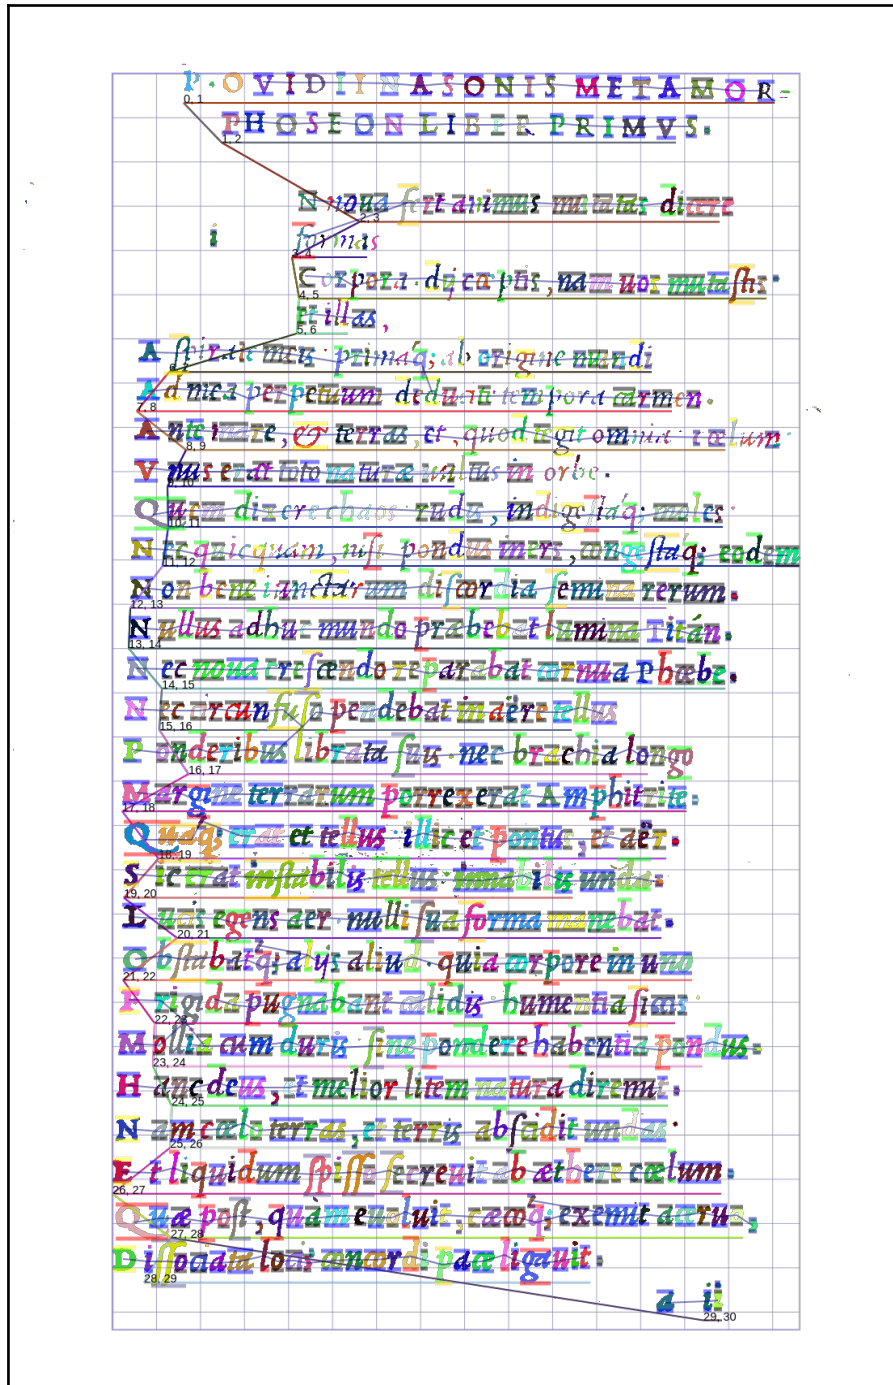 P. OVIDII NASONIS METAMOR-
0, 1
PHOSEON LIBER PRIMVS.
1, 2
N noua fert animus mutatas dicere
2, 3
i
formas
3, 4
Corpora. dij cœptis, nam uos mutastis
4, 5
Et illas,
5, 6
A spirate meis · primaq́; ab origine mundi
6, 7
A d mea perpetuum deducite tempora carmen.
7, 8
A nte mare, & terras, et, quod tegit omnia cœlum
8, 9
V nus erat toto naturæ uultus in orbe.
9, 10
Q uem dixere chaos · rudis, indigestaq́; moles
10, 11
N ec quicquam, nisi pondus iners, congestaq́; eodem
11, 12
N on bene iunctarum discordia semina rerum.
12, 13
N ullus adhuc mundo præbebat lumina Titán.
13, 14
N ec noua crescendo reparabat cornua Phœbe.
14, 15
N ec circunfuso pendebat in aëre tellus
15, 16
P onderibus librata suis · nec brachia longo
16, 17
M argine terrarum porrexerat Amphitrite.
17, 18
Q uaq́; erat et tellus · illic et pontus, et aër.
18, 19
S ic erat instabilis tellus · innabilis unda.
19, 20
L ucis egens aer · nulli sua forma manebat.
20, 21
O bstabatq́; alijs aliud · quia corpore in uno
21, 22
F rigida pugnabant calidis · humentia siccis
22, 23
M ollia cum duris · sine pondere habentia pondus.
23, 24
H anc deus, et melior litem natura diremit.
24, 25
N am cœlo terras, et terris abscidit undas.
25, 26
E t liquidum spisso secreuit ab æthere cœlum.
26, 27
Q uæ post, quàm euoluit, cæcoq́; exemit aceruo,
27, 28
D issociata locis concordi pace ligauit.
28, 29
a ii
29, 30